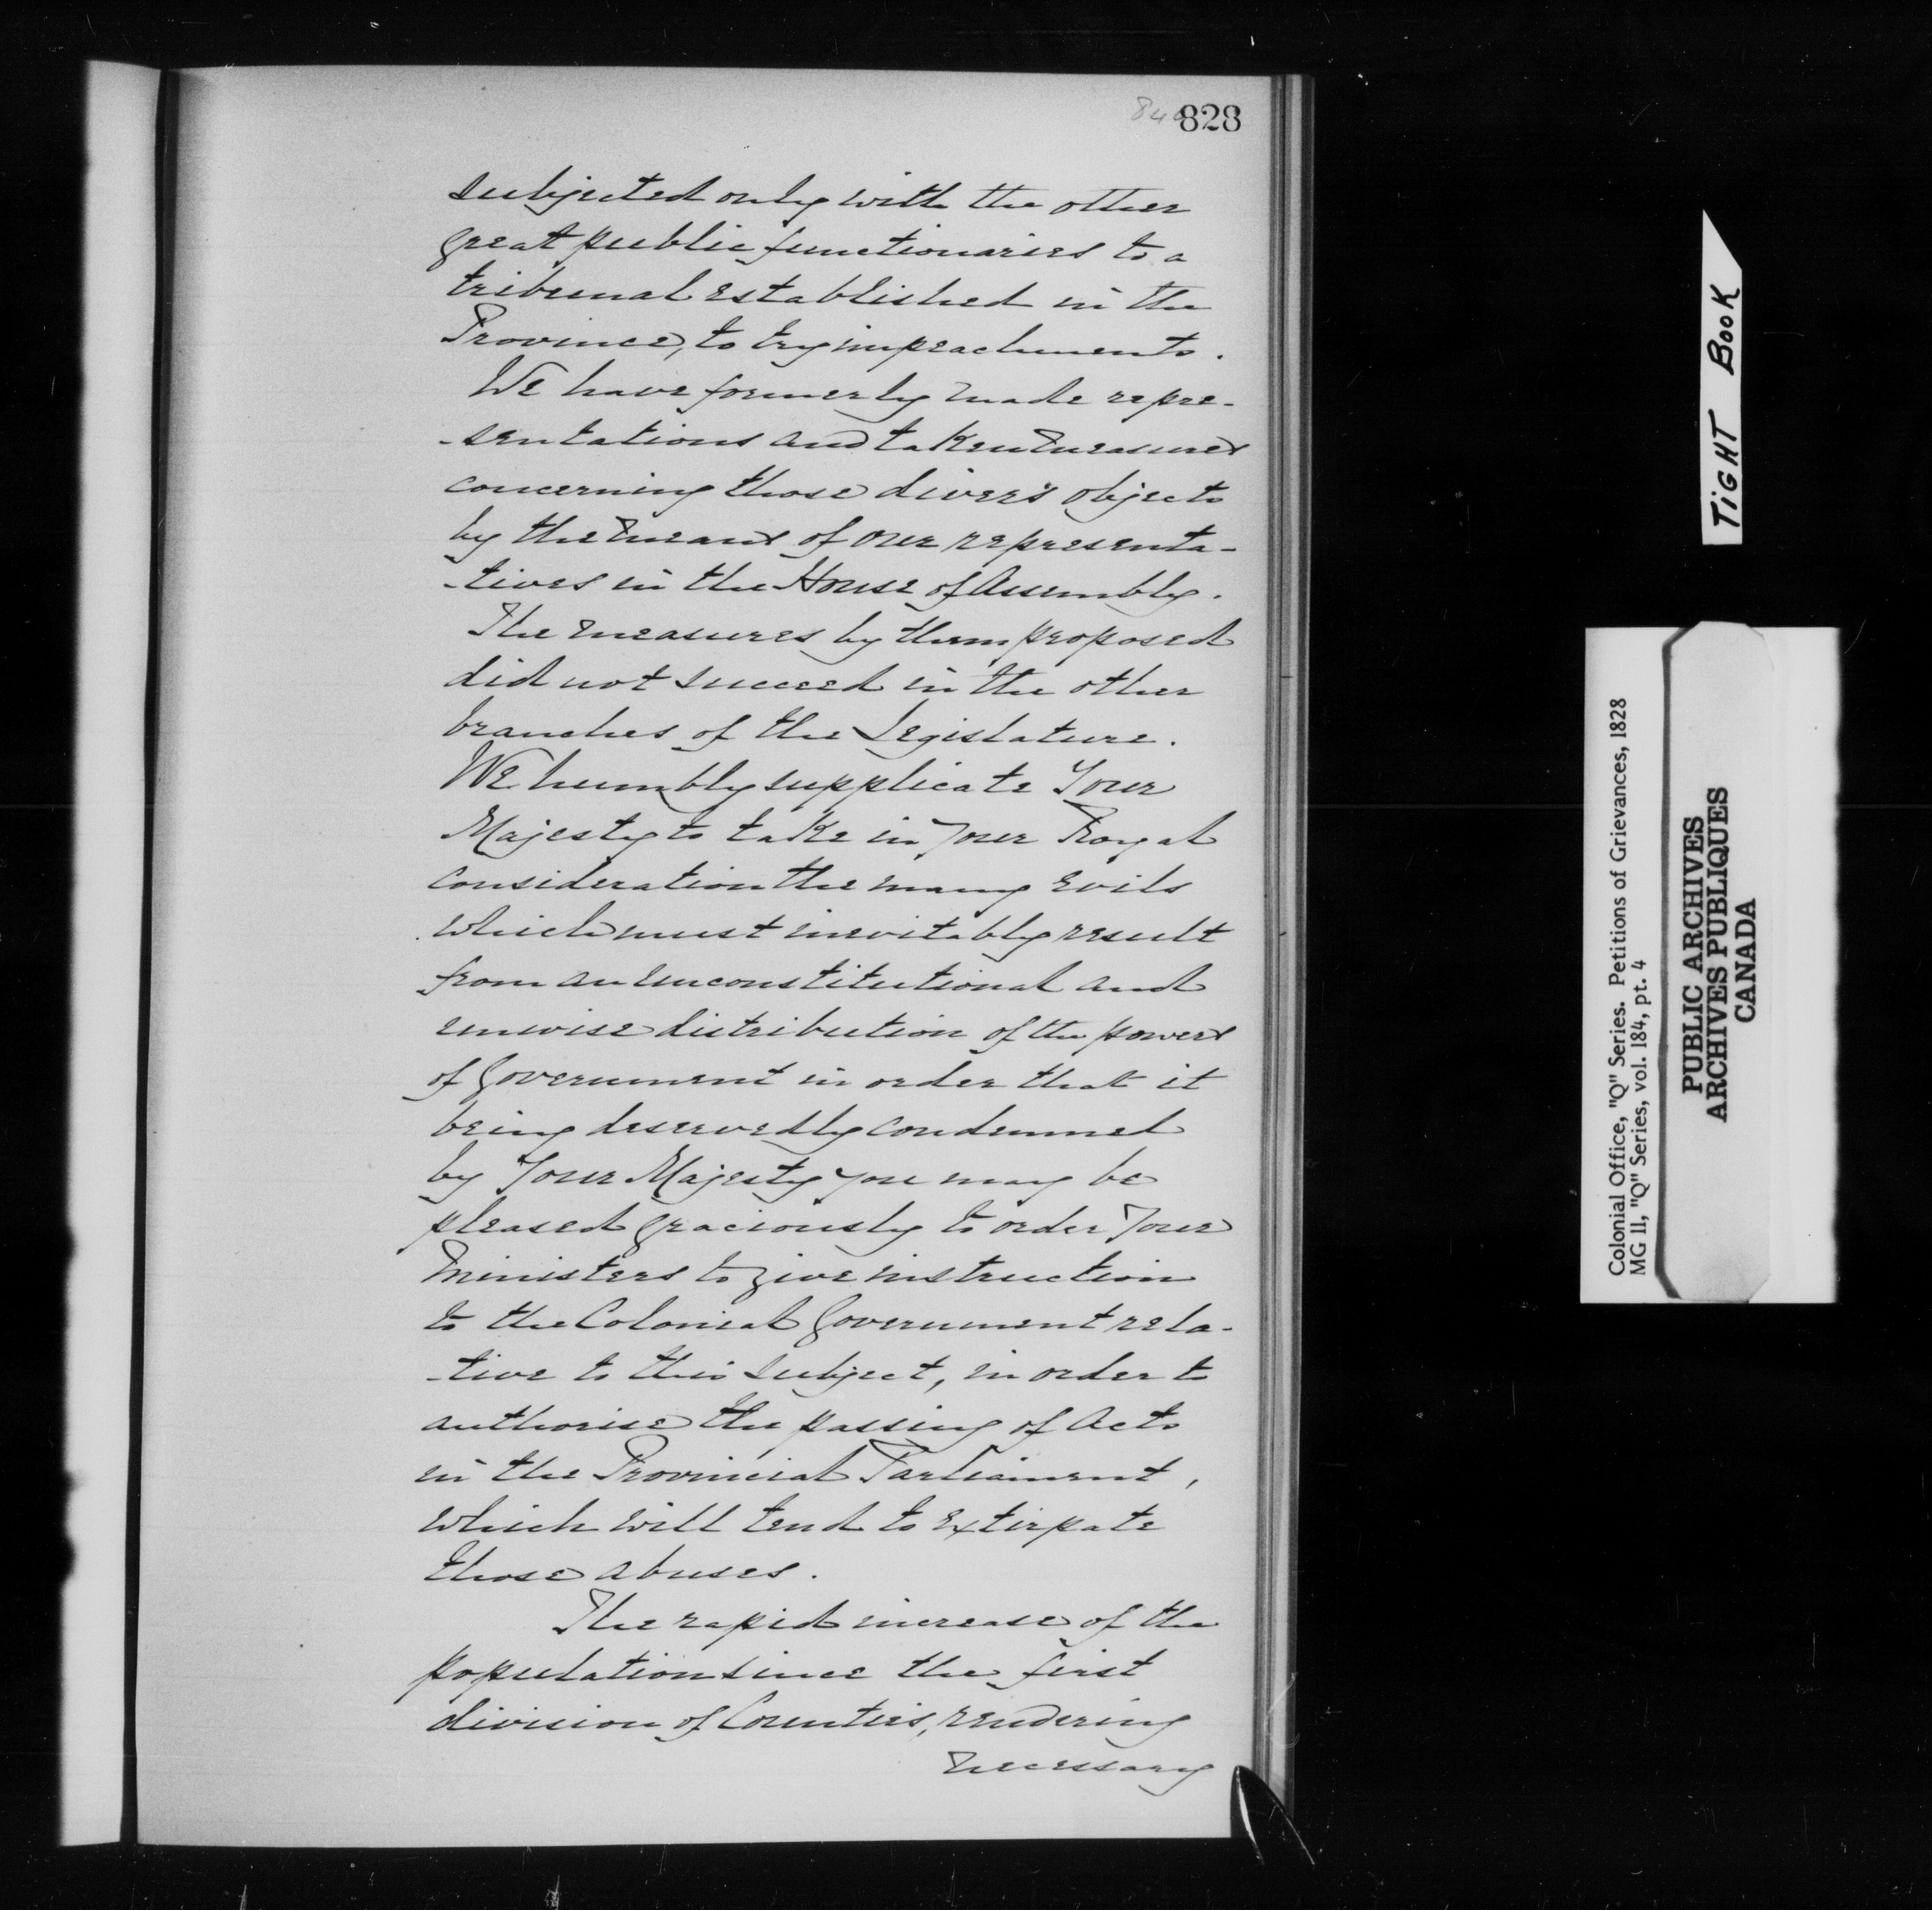 828
subjected only with the other
great public functionaries to a
tribunal established in the
Province, to try impeachments.
We have formerly made repre-
-sentations and taken measures
concerning those divers objects
by the means of our representa-
-tives in the House of Assembly.
The measures by them proposed
did not succeed in the other
branches of the Legislature.
We humbly supplicate Your
Majesty to take in your Royal
consideration the many evils
which must inevitably result
from an unconstitutional and
unwise distribution of the powers
of Government in order that it
being deservedly condemned
by Your Majesty you may be
pleased graciously to order Your
Ministers to give instruction
to the Colonial Government rela-
-tive to this subject, in order to
authorise the passing of Acts
in the Provincial Parliament,
which will tend to extirpate
those abuses.
The rapid increase of the
population since the first
division of Counties, rendering
necessary
TIGHT BOOK
Colonial Office, "Q" Series. Petitions of Grievances, 1828
MG 11, "Q" Series, vol. 184, pt. 4
PUBLIC ARCHIVES
ARCHIVES PUBLIQUES
CANADA